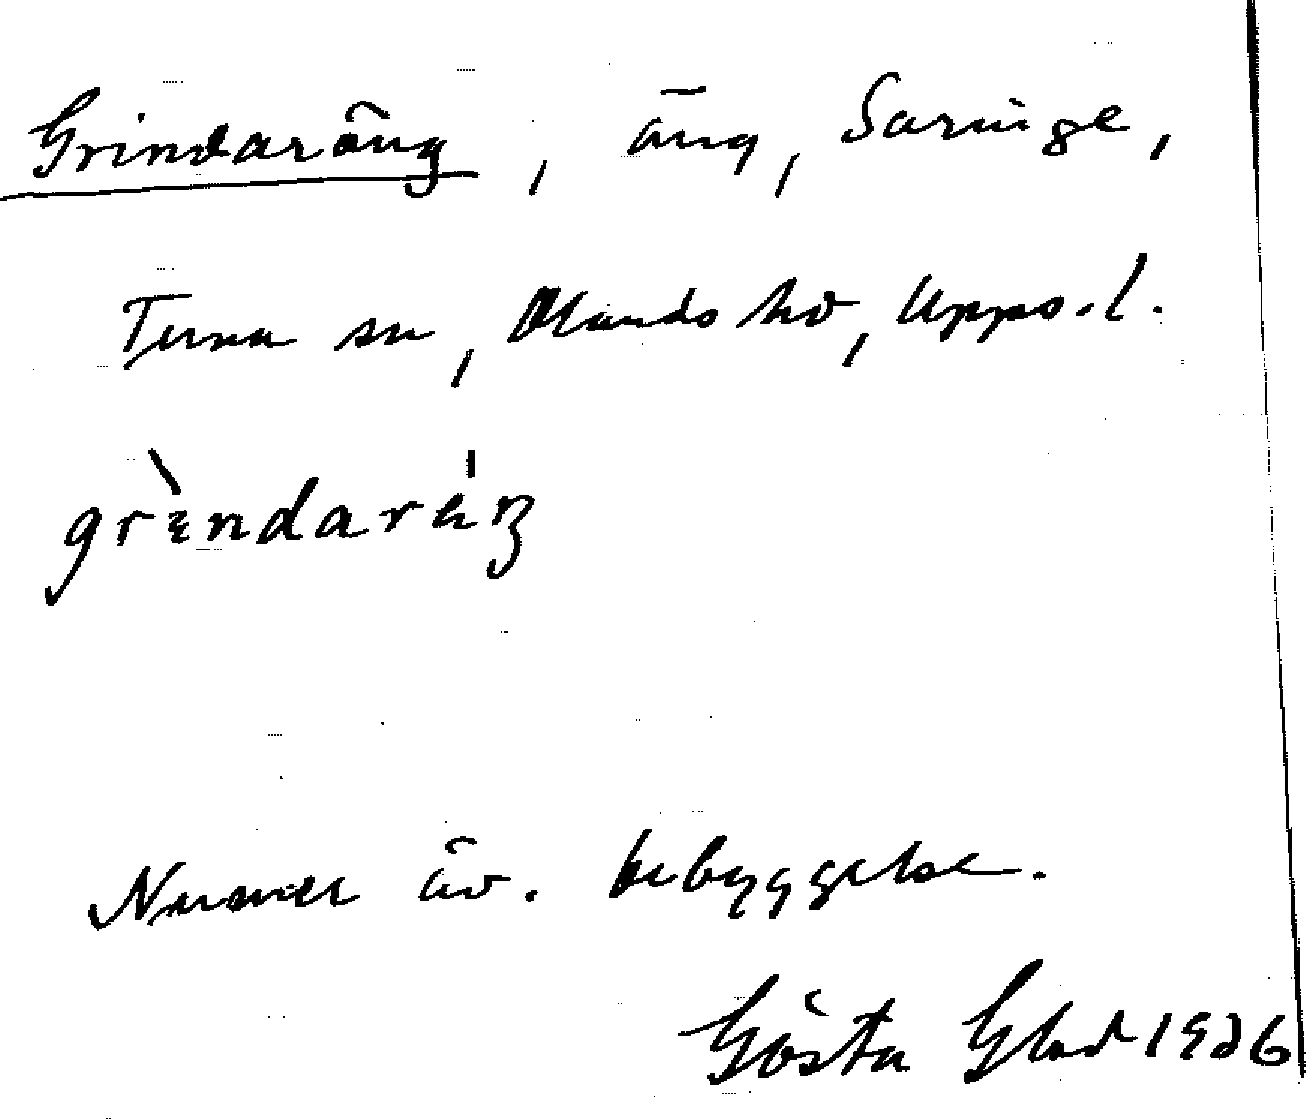 Grindaräng, äng, Saringe,
Tuna sn, Olands hd, Upps.l.
grìndaráŋ
Numer äv. bebyggelse.
Gösta Glad 1926